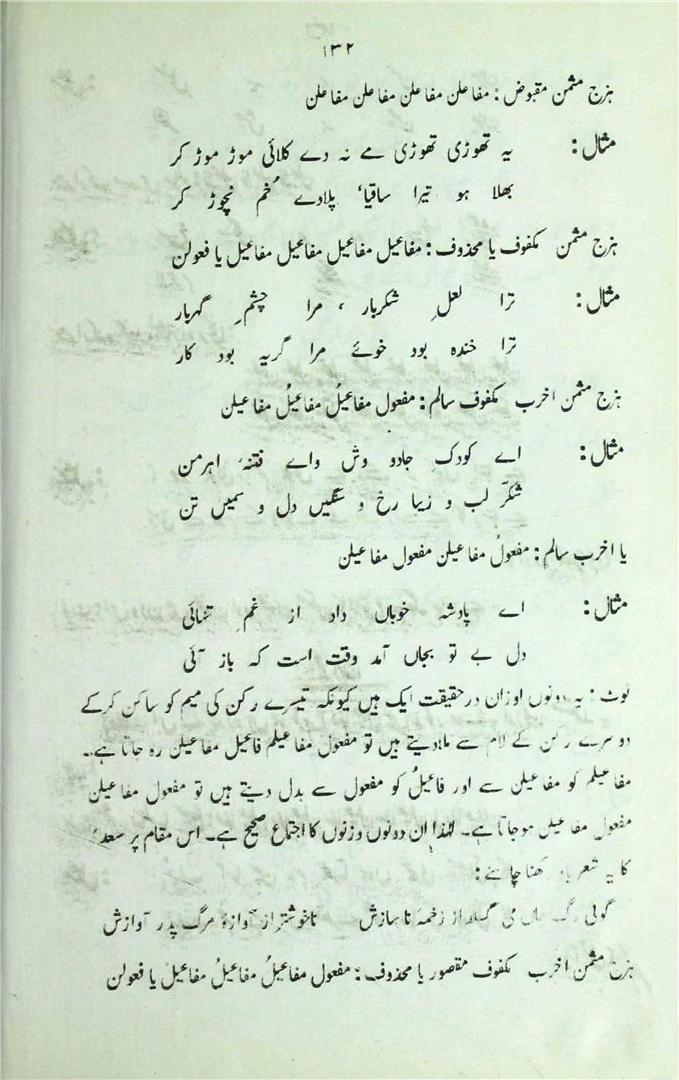 ۱۳۲
ہزج مثمن مقبوض : مفاعلن مفاعلن مفاعلن مفاعلن
مثال : یہ تھوڑی تھوڑی مے نہ دے کلائی موڑ موڑ کر
بھلا ہو تیرا ساقیا، پلادے خُم نچوڑ کر
ہزج مثمن مکفوف یا محذوف : مفاعیل مفاعیل مفاعیل مفاعیل یا فعولن
مثال : ترا لعلِ شکربار ، مرا چشمِ گہربار
ترا خندہ بود خوئے مرا گریہ بود کار
ہزج مثمن اخرب مکفوف سالم : مفعول مفاعیلُ مفاعیلُ مفاعیلن
مثال : اے کودکِ جادو وش واے فتنۂ اہرمن
شکّر لب و زیبا رخ و سنگیں دل و سمیں تن
یا اخرب سالم : مفعولُ مفاعیلن مفعول مفاعیلن
مثال : اے پادشہ خوباں داد از غمِ تنہائی
دل بے تو بجاں آمد وقت است کہ باز آئی
نوٹ : یہ دونوں اوزان درحقیقت ایک ہیں کیونکہ تیسرے رکن کی میم کو ساکن کرکے
دوسرے رکن کے لام سے ملادیتے ہیں تو مفعول مفاعیلم فاعیل مفاعیلن رہ جاتا ہے۔
مفاعیلم کو مفاعیلن سے اور فاعیلُ کو مفعول سے بدل دیتے ہیں تو مفعول مفاعیلن
مفعول مفاعیلن ہوجاتا ہے۔ لہٰذا ان دونوں وزنوں کا اجتماع صحیح ہے۔ اس مقام پر سعدی
کا یہ شعر یاد رکھنا چاہئے :
گوئی رگ جاں می گسلد از زخمۂ ناسازش ناخوشتر از آوازۂ مرگ پدر آوازش
ہزج مثمن اخرب مکفوف مقصور یا محذوف : مفعول مفاعیلُ مفاعیلُ مفاعیل یا فعولن